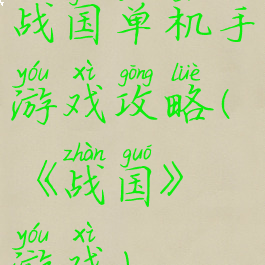 战国单机手
yóu xì gōng lüè
游戏攻略(
zhàn guó
《战国》
yóu xì
游戏)